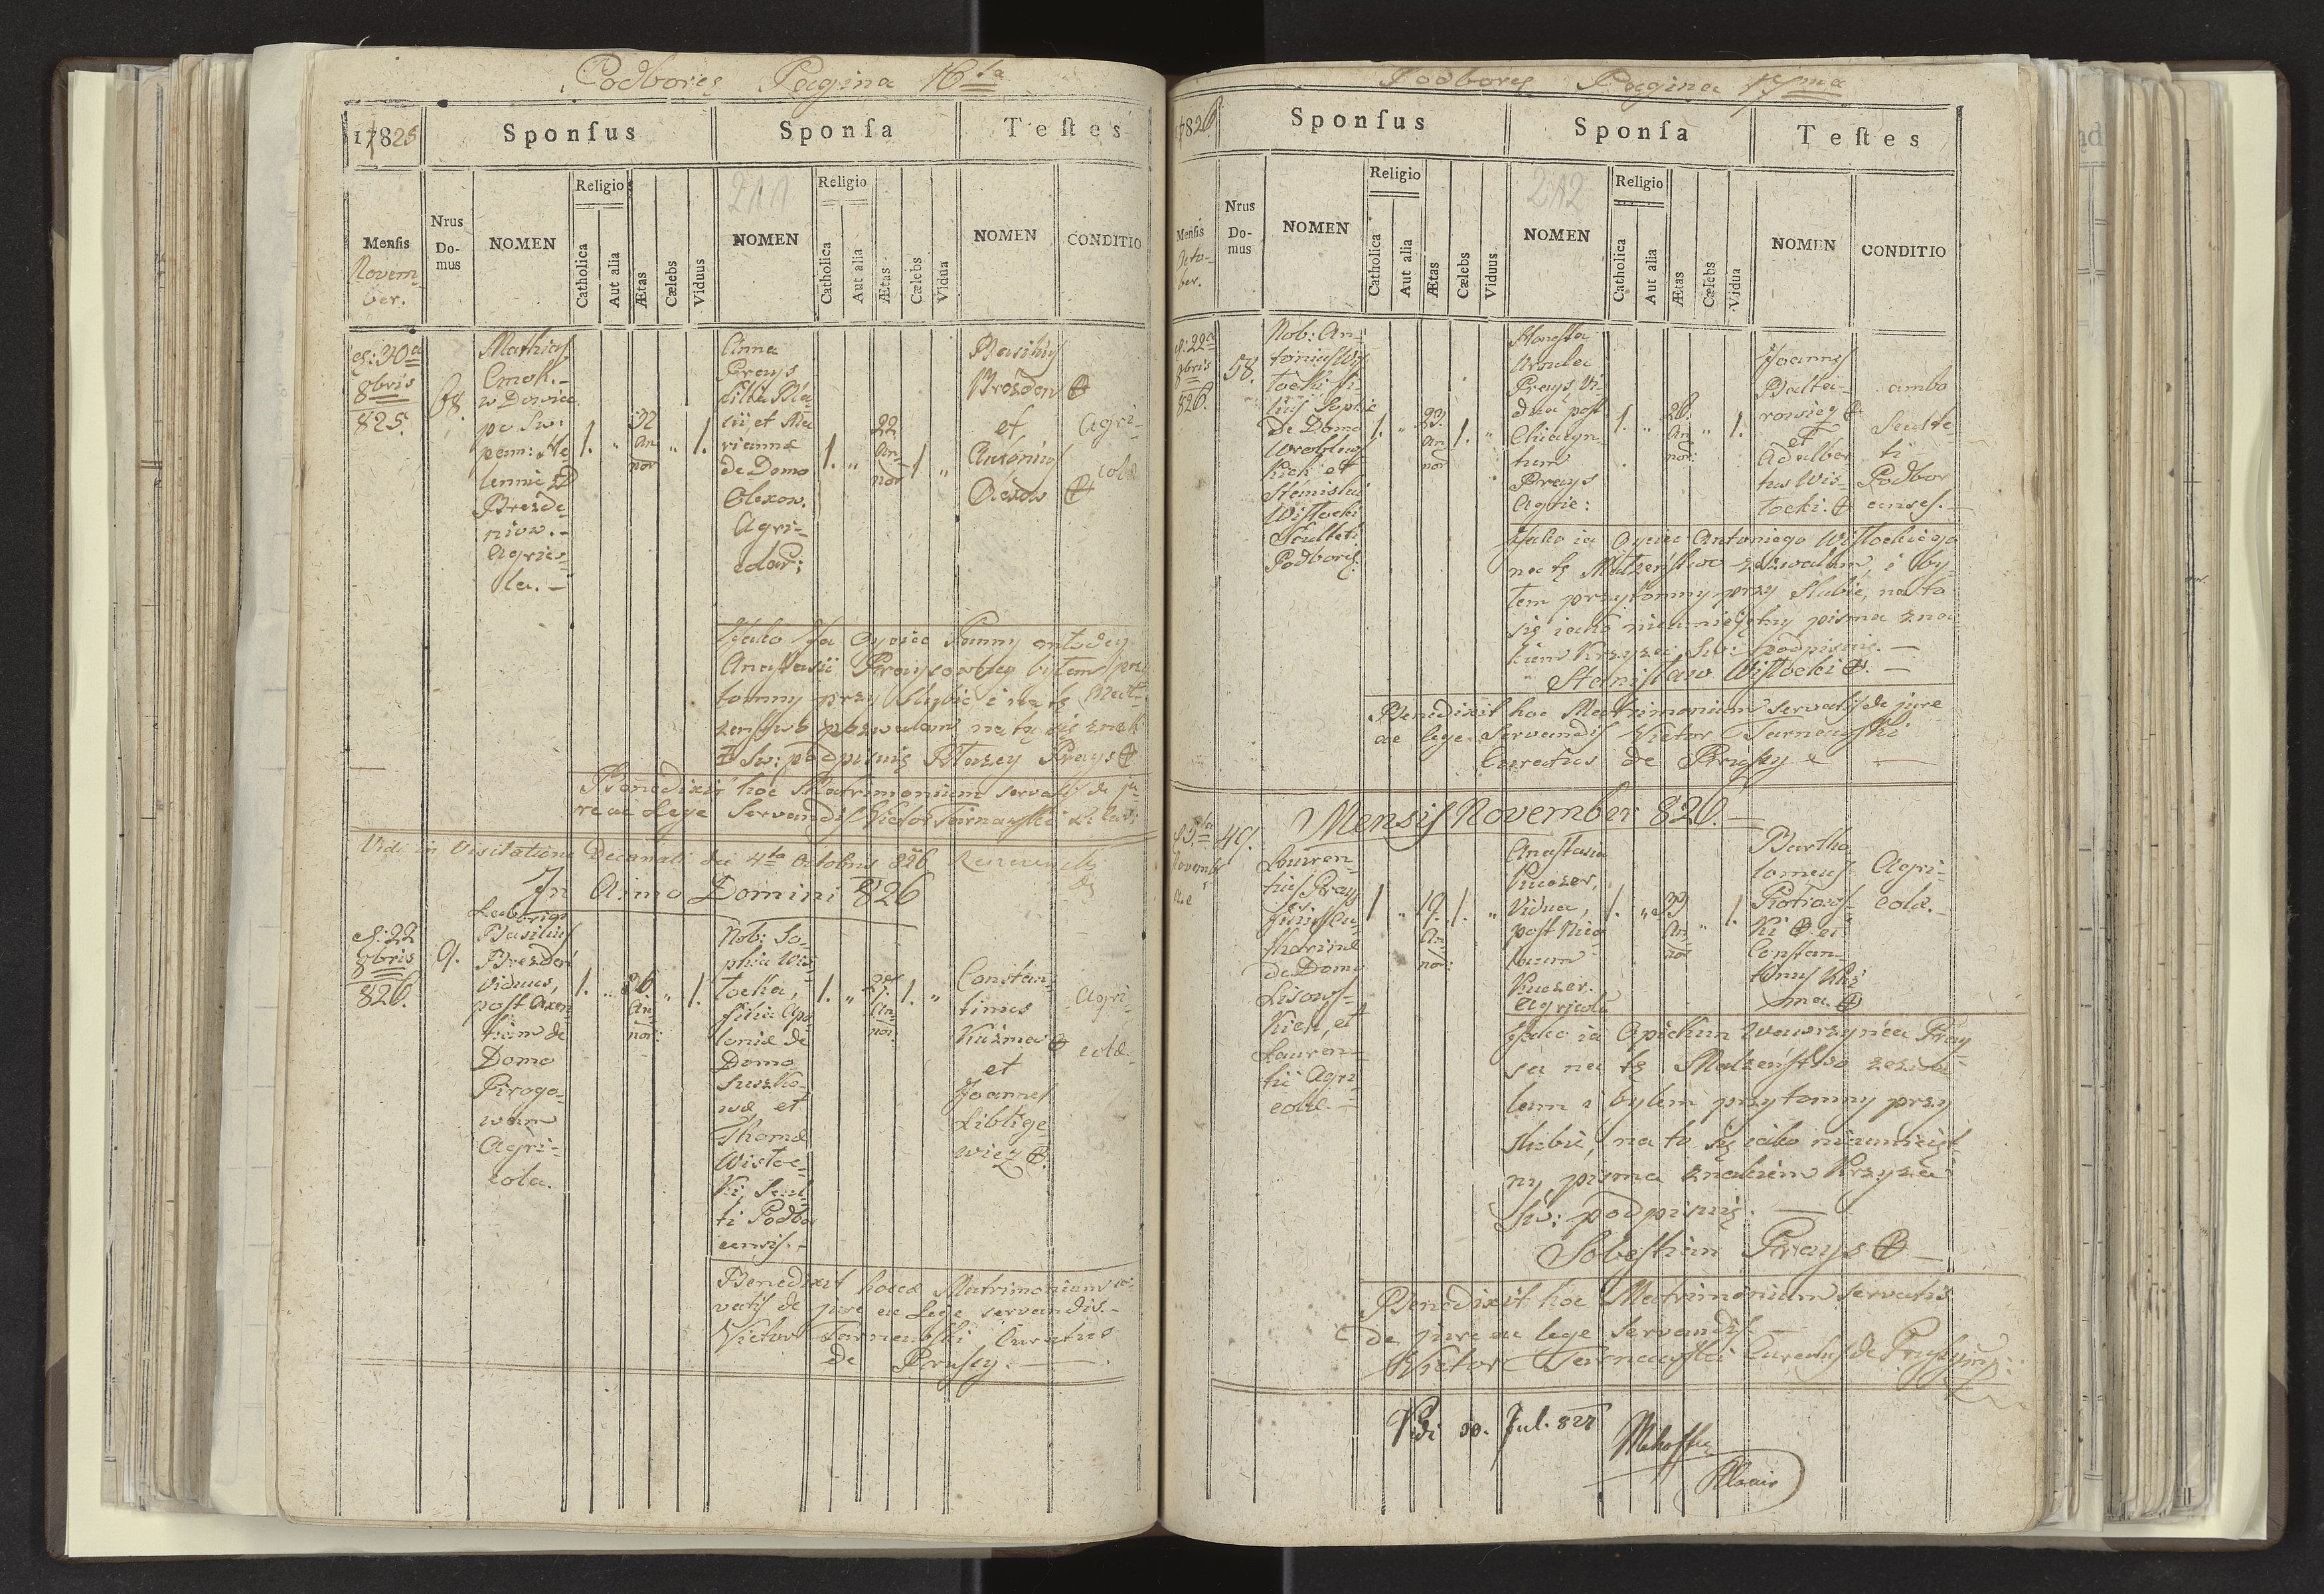 Podbores Pagina 16ta
17825
Sponsus
Sponsa
Testes
Mensis
Novem-
ber.
Nrus
Do-
mus
NOMEN
Religio
Catholica
Aut alia
Ætas
Cælebs
Viduus
211
NOMEN
Religio
Catholica
Aut alia
Ætas
Cælebs
Vidua
NOMEN
CONDITIO
d: 30a
8bris
825.
68.
Mathias
Cmok.-
wDowiec
po Sw:
pam: He-
lennie zD
Brezde-
niow.-
Agrico-
la.-
1.
"
32
An
nor
"
1.
Anna
Prays
filia Bla-
sii, et Ma
riannæ
de Domo
Olexow.
Agri-
colar:
1.
"
22
An-
nor
1
"
Basilius
Brezden
et
Antonius
Agri-
colæ
Jako Ja Oyciec Panny młodey
Anastasii Praysowney byłem przy
tomny przy Slubie i na te Mał-
zenstwo pozwalam na to się znak
✝ Sw: podpisuię Błazey Prays
Benedixit hoc Matrimonium servatis de ju-
re ac Lege Servandis Victor Tarnawski
Vidi in Visitatione Decanali die 4ta Octobris 826
In Anno Domini 826
d: 22
8bris
826.
9.
Laborios
Basilius
Brezden
viduus,
post Axen
tium de
Domo
Pirogo-
wam
Agri-
cola.
1.
"
26.
An-
nor:
"
1.
Nob: So-
phia Wis-
łocka,
filia Apo
loniæ de
Domo
Suszko-
wæ et
Thomæ
Wisłoc-
ki Scul-
ti Podbo
censis.-
1.
"
An-
nor:
1.
"
Constan-
tinus
Kuzma
et
Joannes
wicz
Agri-
colæ
Benedixit hocce Matrimonium ser-
vatis de jure ac Lege servandis.-
Victor Tarnawski Curatus
de Prusy.
Podbores Pagina 17ma
17826
Sponsus
Sponsa
Testes
Mensis
Octo-
ber.
Nrus
Do-
mus
NOMEN
Religio
Catholica
Aut alia
Ætas
Cælebs
Viduus
212
NOMEN
Religio
Catholica
Aut alia
Ætas
Cælebs
Vidua
NOMEN
CONDITIO
d: 22a
8bris
826.
58.
Nob: An-
tonius Wis
łocki fi-
lius Sophiæ
de Domo
Wroblews
kich et
Stanislai
Wisłocki
Sculteti
Podbores.
1.
"
23.
An
nor
1.
"
Prays Vi-
dua post
tum
Prays
Agric:
1.
"
28.
An
nor:
"
1.
Joannes
et
Adalber
tus Wis-
łocki.
ambo
Sculte-
ti
Podbor
censes.-
Jako ia Oyciec Antoniego Wisłockiego
na te Małzeństwo zezwalam, i by-
łem przytomny przy Slubie, na to
się iako nieumiejętny pisma zna-
kiem Krzyza Sw: podpisuię.-
Stanisław Wisłocki
Benedixit hoc Matrimonium servatis de jure
ac lege Servandis Victor Tarnawski
Curatus de Prusy
Mensis November 826.
49.
Novembr
Lauren-
tius Prays
filius Ca-
tharinæ
de Domo
Lisows-
kich, et
Lauren-
tii Agri-
colæ.-
1
"
19.
An-
nor:
1.
"
Anastasia
Kuczer,
Vidua,
post Nico-
laum
Kuczer.
Agricola
1.
"
33
An-
nor
"
1.
Bartho
lomeus
Piotrows-
ki et
Constan-
tinus Kuz
ma.
Agri-
colæ.-
Jako ia Opiekun Wawrzyńca Pray-
sa na te Małzeństwo zezwa-
lam i byłem przytomny przy
Slubie, na to się iako nieumieięt-
ny pisma znakiem Krzyza
Sw: podpisuię.
Sebestian Prays
Benedixit hoc Matrimonium servatis
de jure ac lege servandis.-
Victor Tarnawski Curatus de Prusy
Vidi 30. Jul. 827